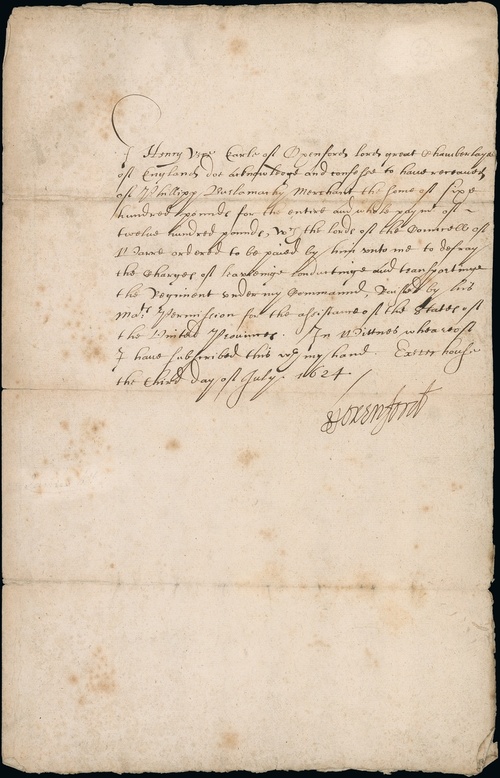 I Henry Vere Earle of Oxenford lord great Chamberlayne
of England doe acknowledge and confesse to have receaved
of Phillipp Burlamachy Merchant the some of Sixe
hundred pounds for the entire and whole paymt of
twelve hundred pounds, wch the lords of the Councell of
Warre ordered to be paied by him unto me to defray
the Charges of Leavienge conductinge and transportinge
the Regiment under my Commaund, raised by his
Mats Permission for the assistance of the States of
the United Provinces. In Wittnes wheareof
I have subscribed this wth my hand. Exeter house
the third day of July. 1624.
H Oxenford